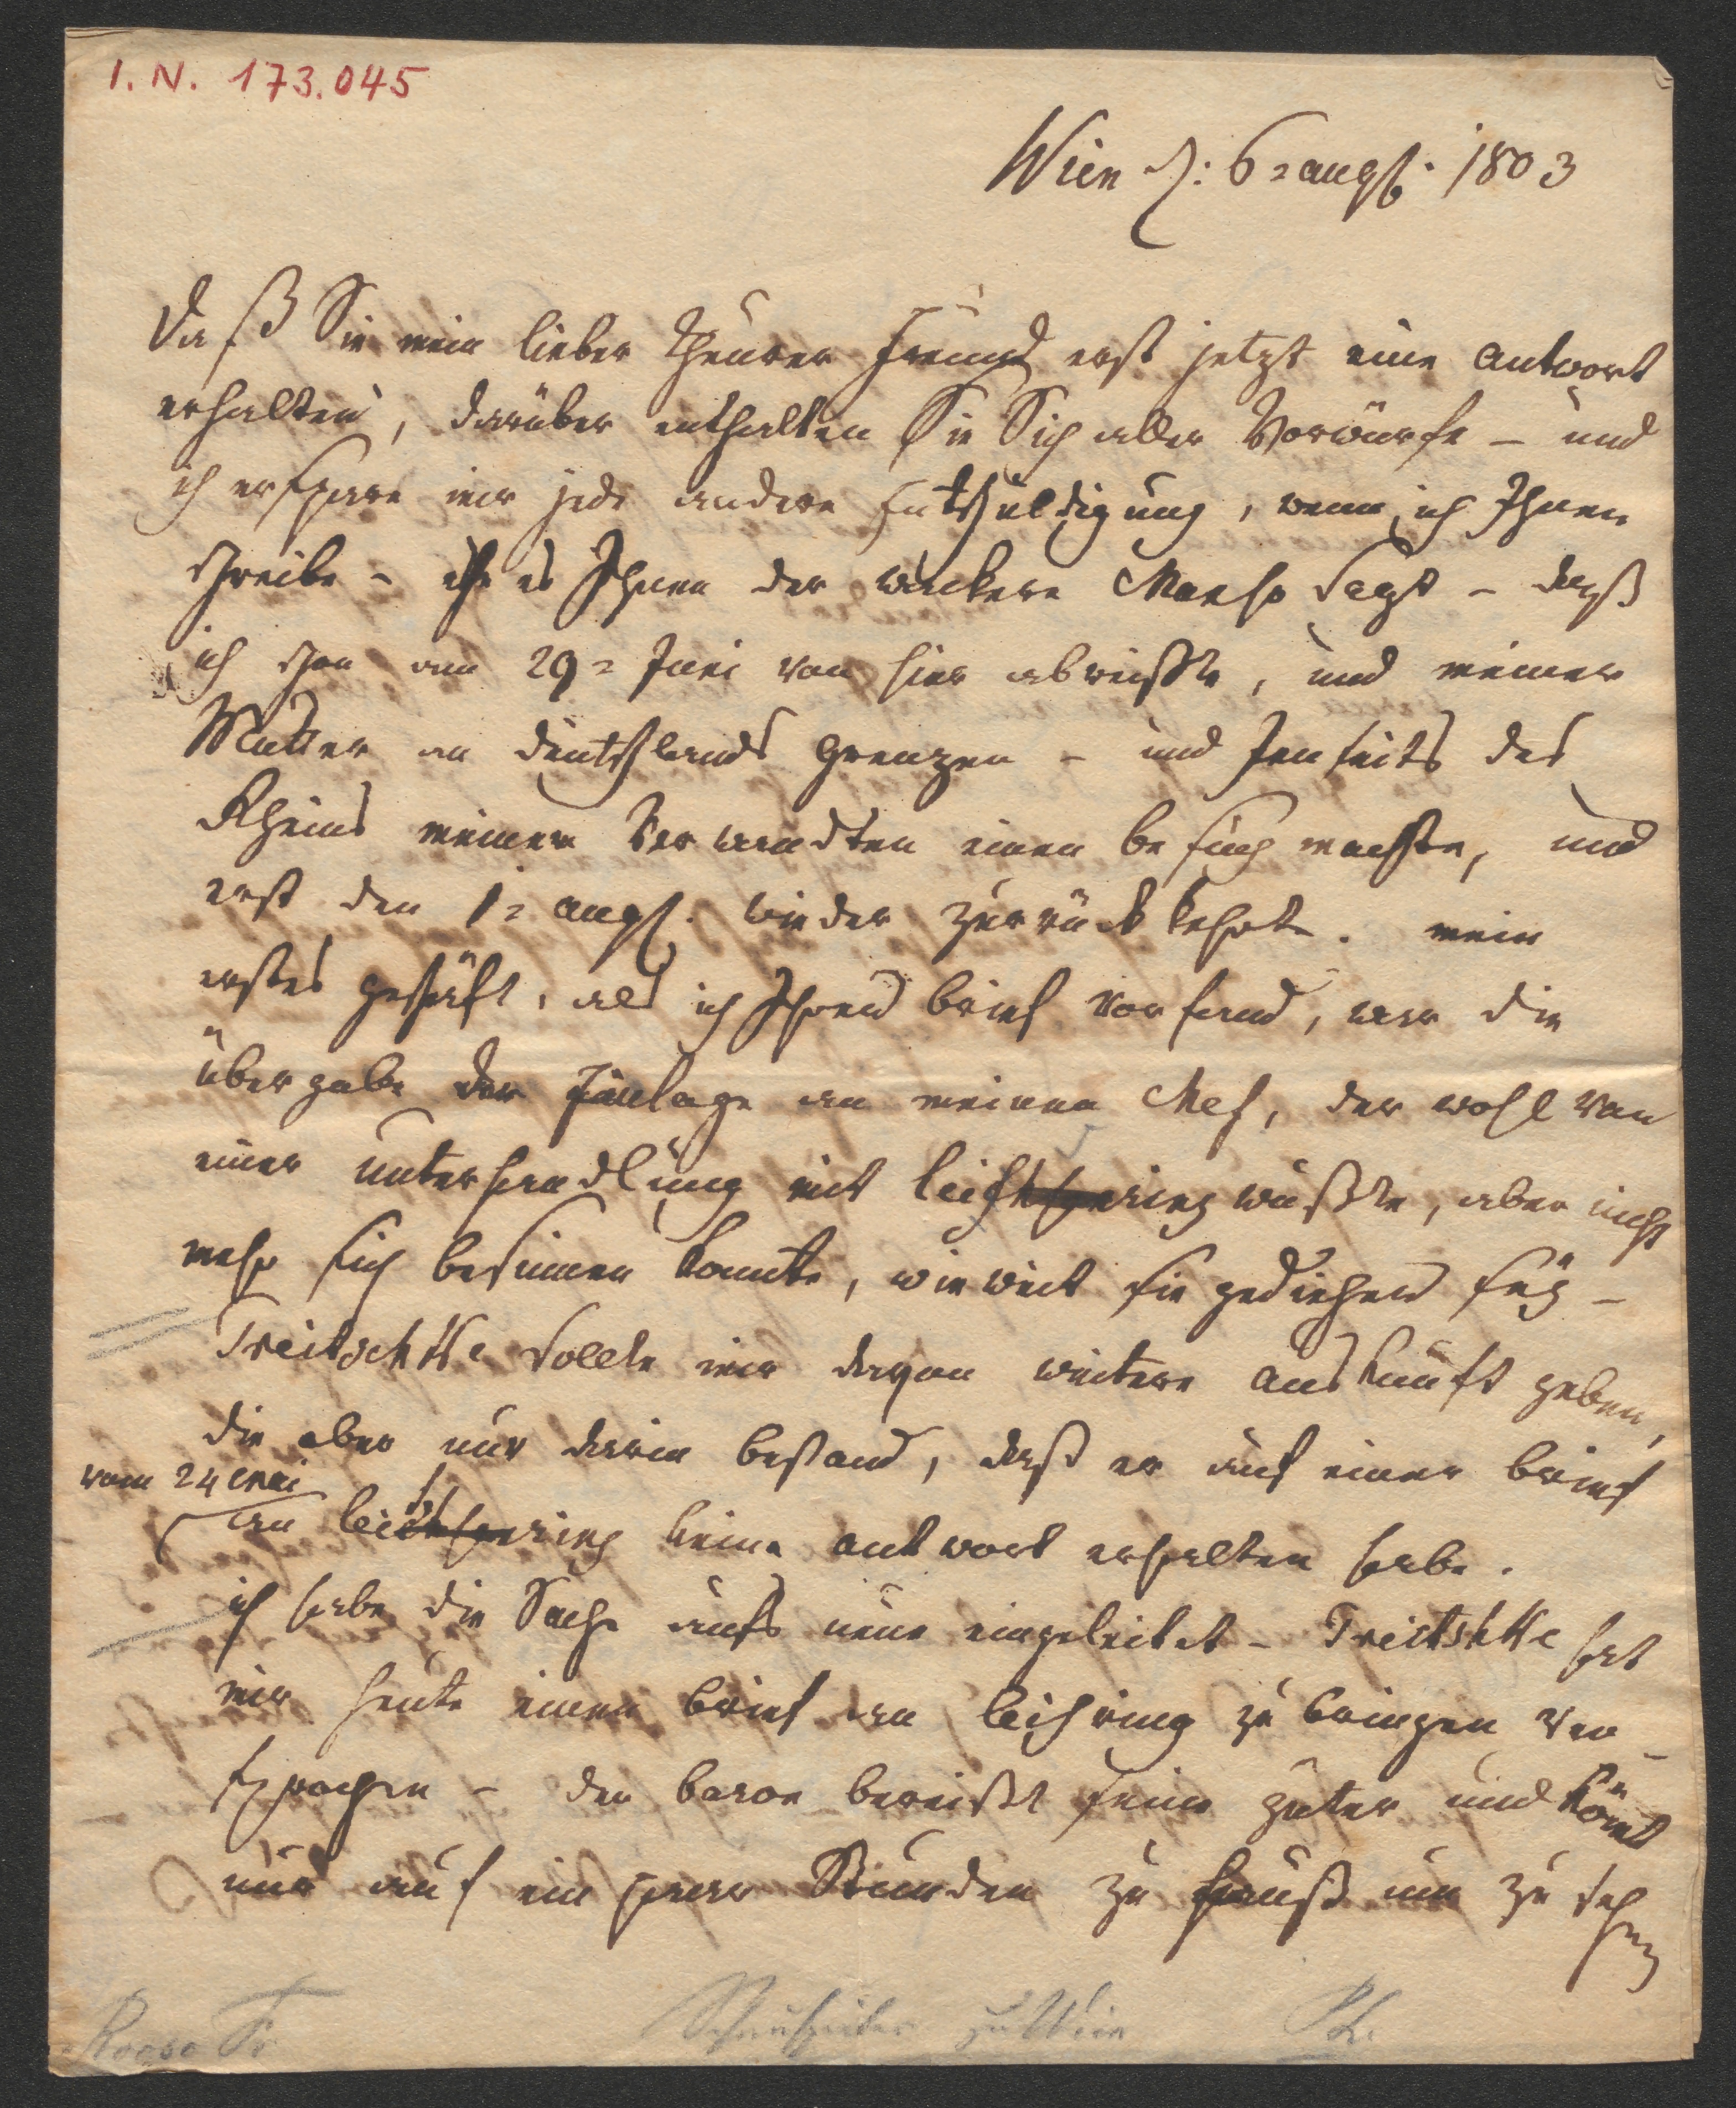 I. N. 173.045
Wien d: 6 = augst. 1803
Daß Sie mein lieber theurer Freund erst jetzt eine Antwort
erhalten, darüber enthalten Sie Sich aller Vorwürfe – und
ich erspare mir jede andere Entschuldigung, wenn ich Ihnen
schreibe – ehe es Ihnen der wackere sagt – daß
ich schon am 29 = Juni von hier abreißte, und meiner
Mutter an Deutschlands Grenzen – und Jenseits des
Rheins meinen Verwandten einen besuch machte, und
erst den 1 = augst. wieder zurück kehrte. mein
erstes geschäft, als ich Ihren brief vorfand, war die
übergabe der Einlage an meinen Chef, der wohl von
einer unterhandlung mit leichring wußte, aber nicht
mehr sich besinnen konnte, wie weit sie gediehen sey –
Treitschke sollte mir davon weitere auskunft geben,
die aber nur darin bestand, daß er auf einen brief
vom 24 Mai
an leichring keine antwort erhalten habe.
ich habe die Sache aufs neue eingeleitet – Treitschke hat
mir heute einen brief an leichring zu bringen ver–
sprochen – der baron bereißt seine güter und kömt
nur auf ein paar Stunden zu Hauß um zu sehen
Roose Fr. Schauspieler zu Wien